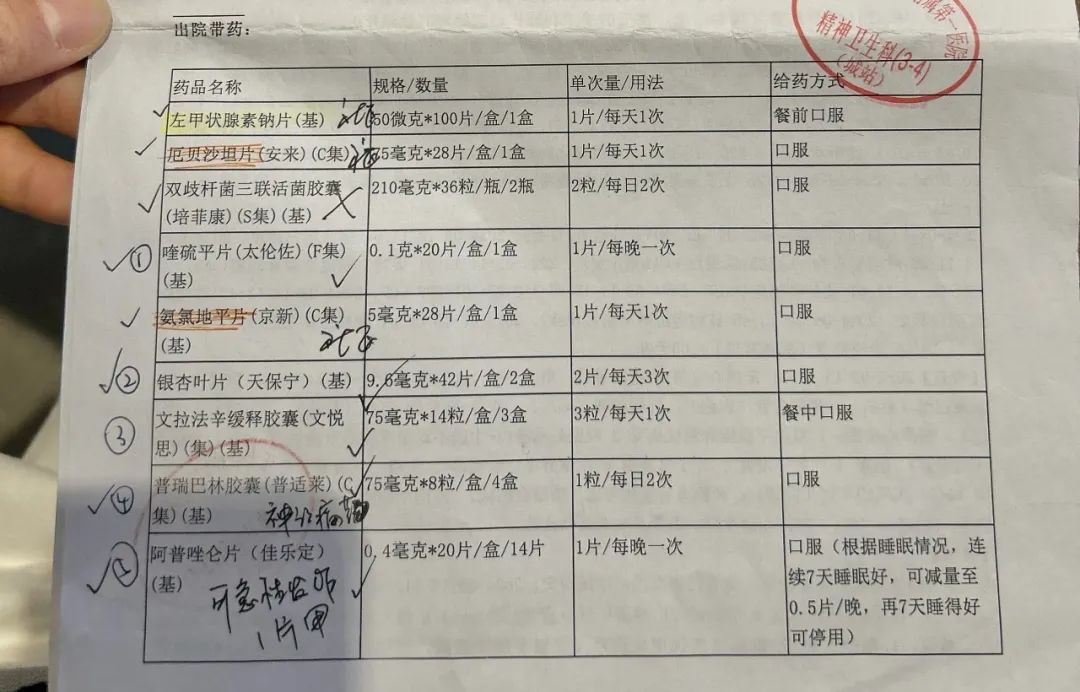 出院带药：
属第一医院
精神卫生科(3-4)
(城站)
药品名称 规格/数量 单次量/用法 给药方式
左甲状腺素钠片(基) 50微克*100片/盒/1盒 1片/每天1次 餐前口服
厄贝沙坦片(安来)(C集) 75毫克*28片/盒/1盒 1片/每天1次 口服
双歧杆菌三联活菌胶囊 210毫克*36粒/瓶/2瓶 2粒/每日2次 口服
(培菲康)(S集)(基)
① 喹硫平片(太伦佐)(F集) 0.1克*20片/盒/1盒 1片/每晚一次 口服
(基)
氨氯地平片(京新)(C集) 5毫克*28片/盒/1盒 1片/每天1次 口服
(基)
② 银杏叶片（天保宁）(基) 9.6毫克*42片/盒/2盒 2片/每天3次 口服
③ 文拉法辛缓释胶囊(文悦 75毫克*14粒/盒/3盒 3粒/每天1次 餐中口服
思)(集)(基)
④ 普瑞巴林胶囊(普适莱)(C 75毫克*8粒/盒/4盒 1粒/每日2次 口服
集)(基)
阿普唑仑片（佳乐定） 0.4毫克*20片/盒/14片 1片/每晚一次 口服（根据睡眠情况，连
(基) 续7天睡眠好，可减量至
0.5片/晚，再7天睡得好
可停用）